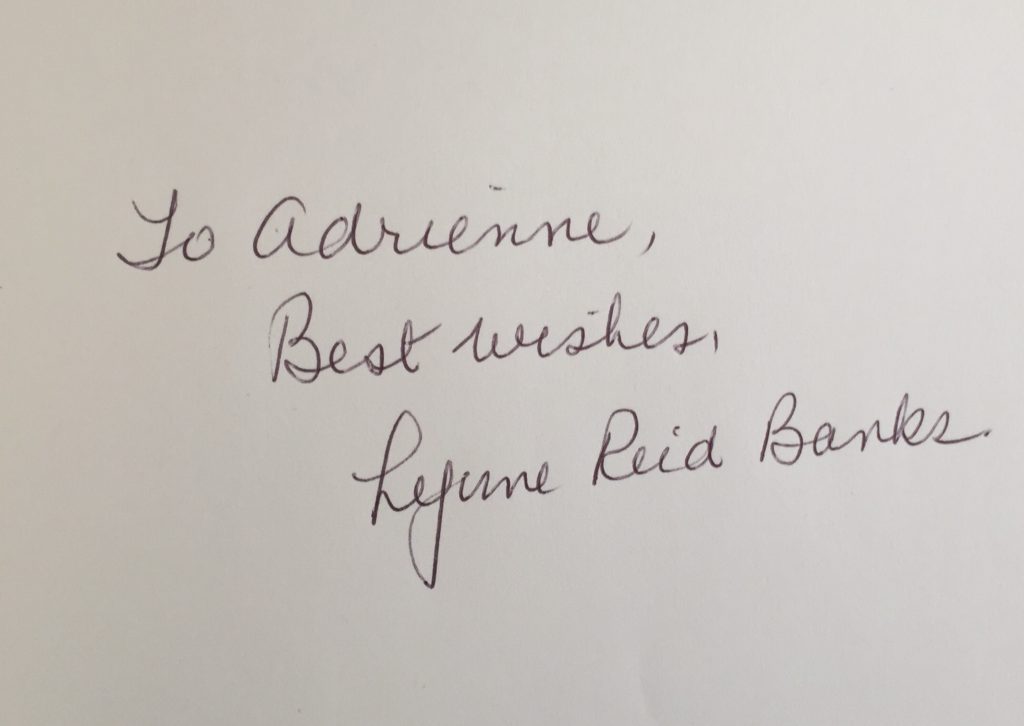 To Adrienne,
Best wishes,
Lynne Reid Banks.